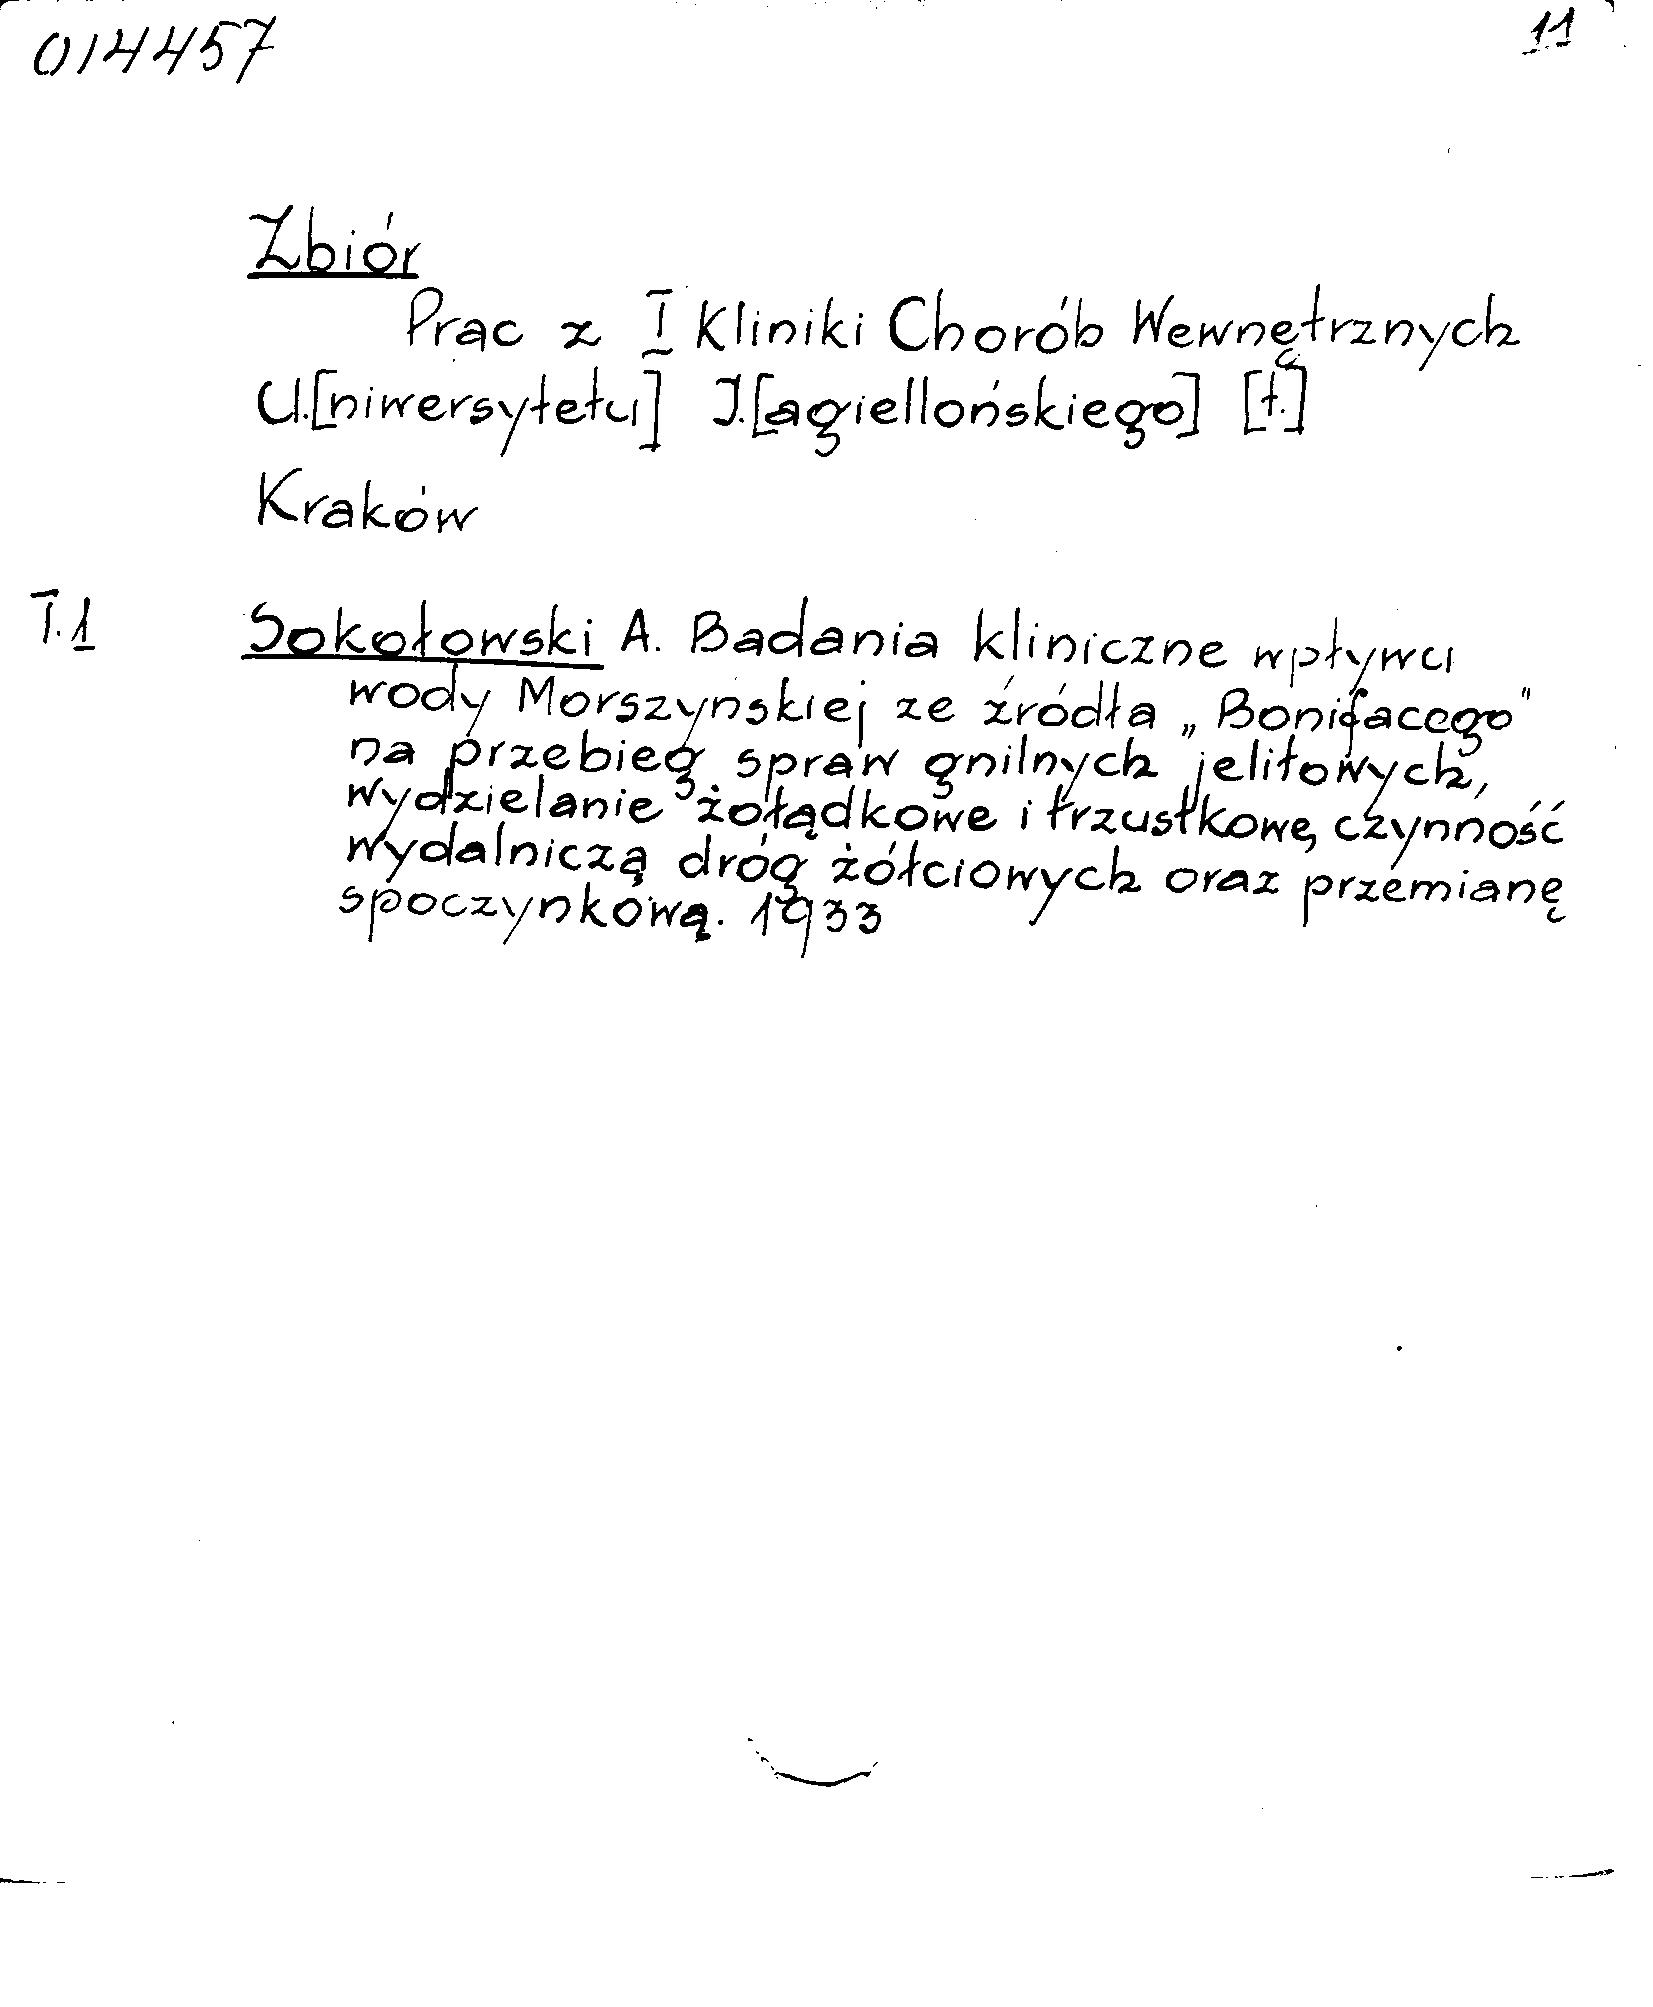 014457
11
Zbiór
Prac z I Kliniki Chorób Wewnętrznych
U.[niwersytetu] J.[agiellońskiego] [t.]
Kraków
T.1
Sokołowski A. Badania kliniczne wpływu
wody Morszyńskiej ze źródła „Bonifacego"
na przebieg spraw gnilnych jelitowych,
wydzielanie żołądkowe i trzustkowe, czynność
wydalniczą dróg żółciowych oraz przemianę
spoczynkową. 1933